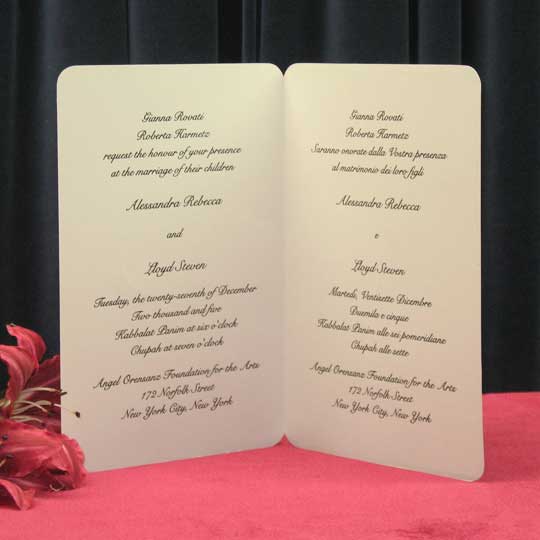 Gianna Rovati
Roberta Harmetz
request the honour of your presence
at the marriage of their children
Alessandra Rebecca
and
Lloyd Steven
Tuesday, the twenty-seventh of December
Two thousand and five
Kabbalat Panim at six o'clock
Chupah at seven o'clock
Angel Orensanz Foundation for the Arts
172 Norfolk Street
New York City, New York
Gianna Rovati
Roberta Harmetz
Saranno onorate dalla Vostra presenza
al matrimonio dei loro figli
Alessandra Rebecca
e
Lloyd Steven
Martedì, Ventisette Dicembre
Duemila e cinque
Kabbalat Panim alle sei pomeridiane
Chupah alle sette
Angel Orensanz Foundation for the Arts
172 Norfolk Street
New York City, New York